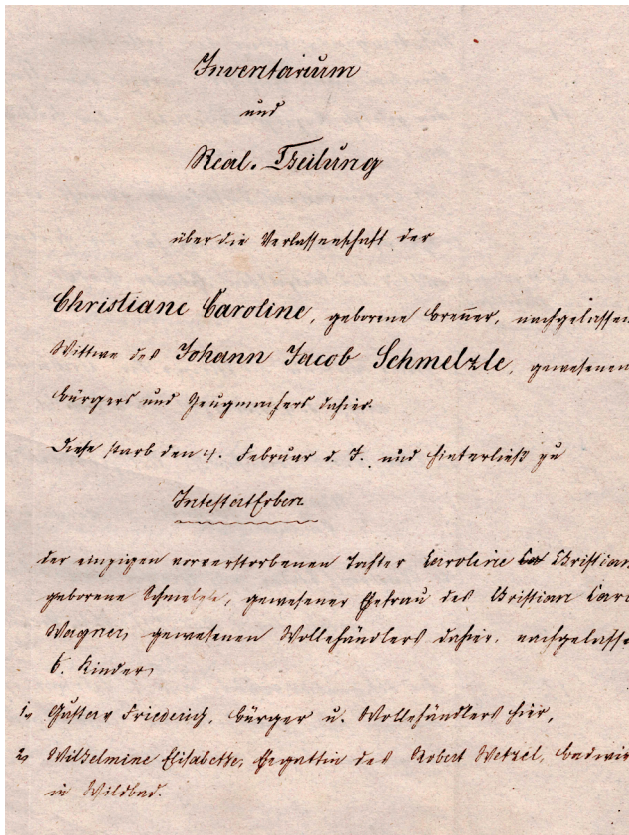 Inventarium
und
Real-Theilung
über die Verlassenschaft der
Christiane Caroline, geborene Breuer, nachgelassen
Wittwe des Johann Jacob Schmelzle, gewesenen
Bürgers und Zeugmachers dahier.
Diese starb den 4. Februar d. J. und hinterließ zu
IntestatErben
der einzigen vorverstorbenen Tochter Caroline Christian
geborene Schmelzle, gewesener Ehefrau des Christian Carl
Wagner, gewesenen Wollehändlers dahier, nachgelasse
6. Kinder,
1, Gustav Friederich, Bürger u. Wollehändlers hier,
2, Wilhelmine Elisabethe, Ehegattin des Robert Wetzel, Badwir
in Wildbad.